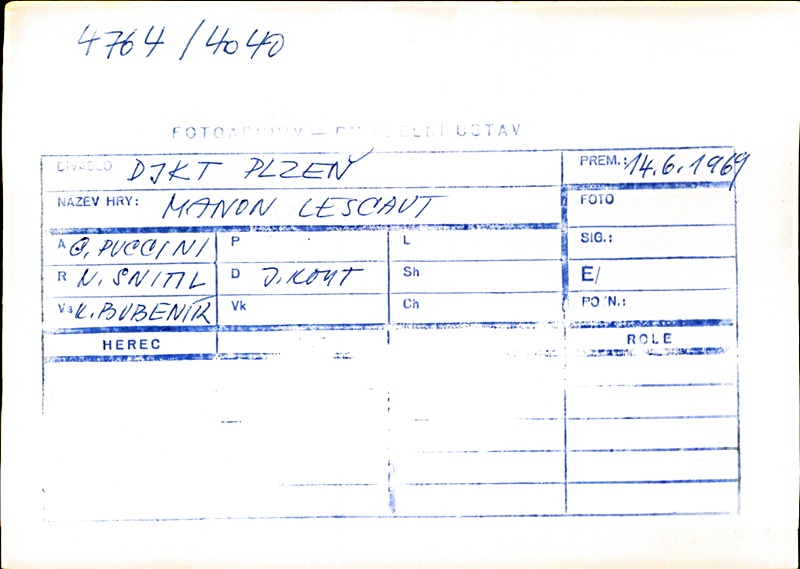 4764/4040
FOTOARCHIV — DIVADELNÍ ÚSTAV
DIVADLO DJKT PLZEŇ PREM.: 14.6.1969
NÁZEV HRY: MANON LESCAUT FOTO
A G. PUCCINI P L SIG.:
R N. SNÍTIL D J. KOUT Sh E/
Vs K. BUBENÍK Vk Ch PO N.:
HEREC ROLE